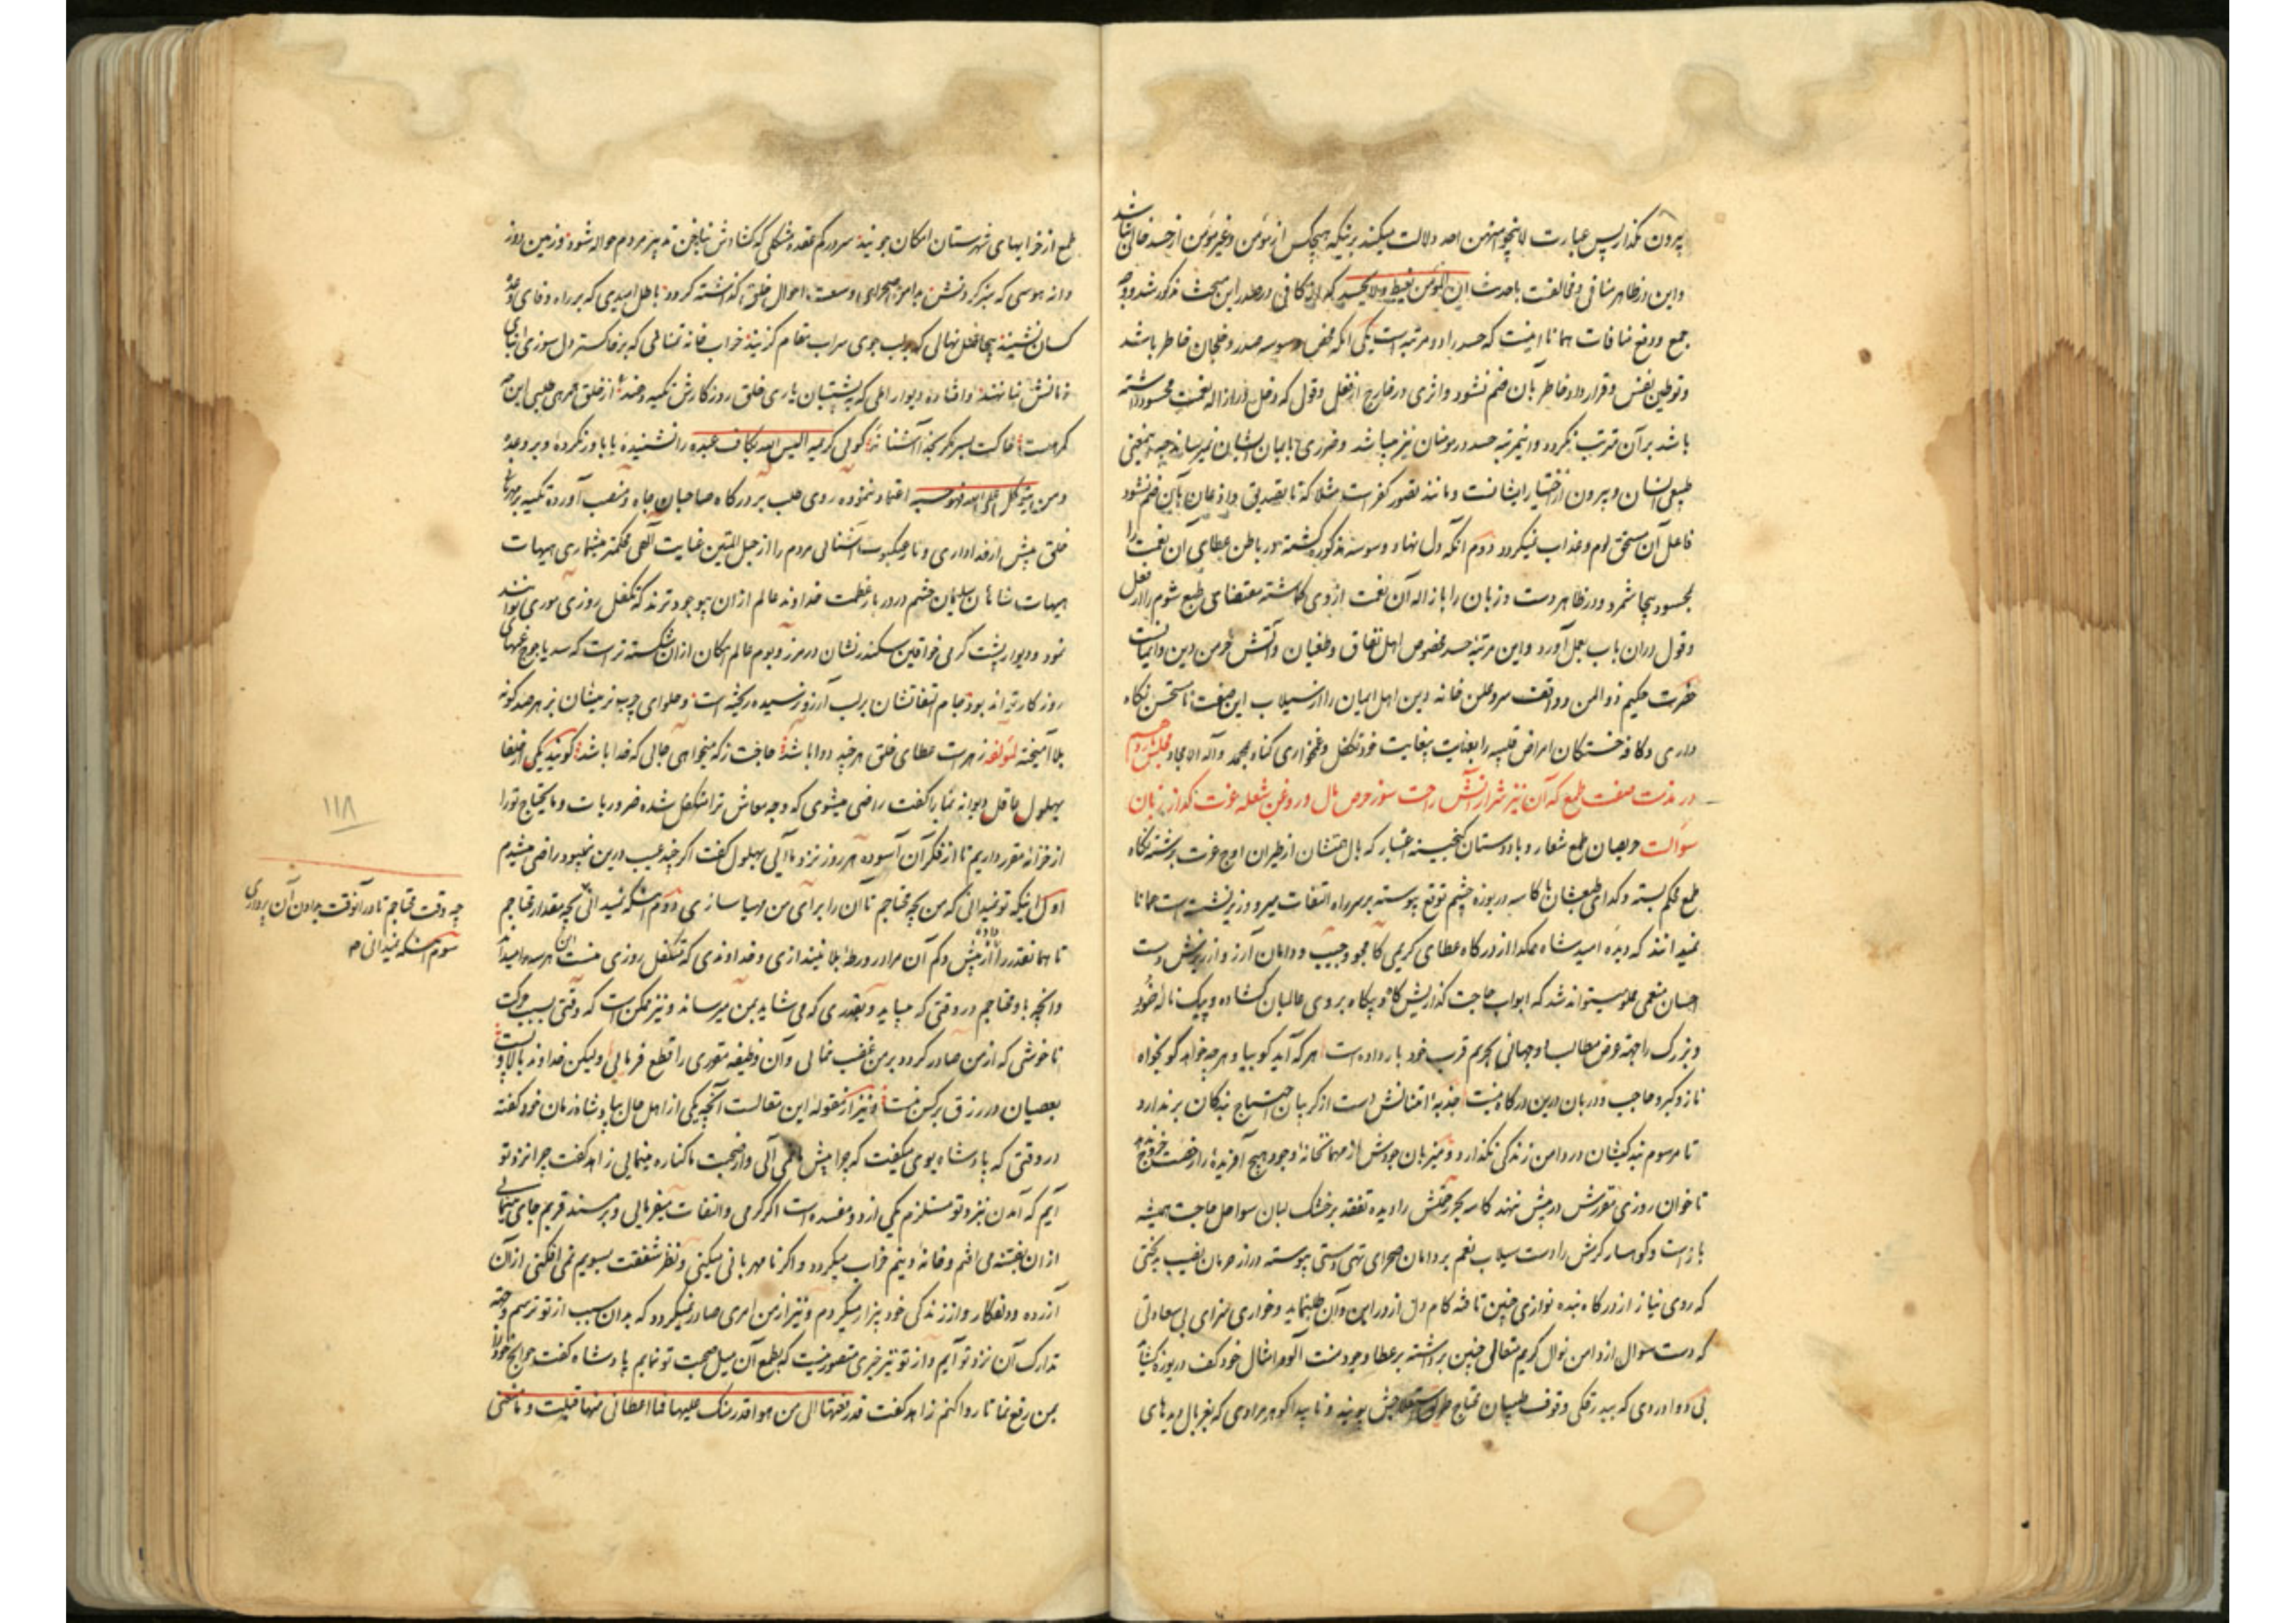 بیرون نگذارد پس عبارت لا ینجو منهن احد دلالت میکند برینکه هیچکس از مؤمن و غیر مؤمن از حسد خالی نباشد
و این در ظاهر منافی و مخالفت با حدیث ان المؤمن یغبط ولا یحسد که از کافی در صدر این مبحث مذکور شد و وجه
جمع و رفع منافات همانا اینست که حسد را دو مرتبه است یکی آنکه محض وسوسه صدر و خلجان خاطر باشد
و توطین نفس و قرارداد خاطر بآن ضم نشود و اثری در خارج از فعل و قول که دخل در ازاله نعمت محسود داشته
باشد بر آن مترتب نگردد و اینمرتبه حسد در مومنان نیز میباشد و ضرری بایمان ایشان نمیرساند چه اینمعنی
طبیعی انسان و بیرون از اختیار ایشانست و مانند تصور کفر است مثلا که تا تصدیق و اذعان بآن ضم نشود
فاعل آن مستحق لوم و عذاب نمیگردد دوم آنکه دل نهاد وسوسه مذکوره گشته در باطن عطای آن نعمت را
بمحسود بیجا شمرد و در ظاهر دست و زبان را بازاله آن نعمت از وی گماشته مقتضای طبع شوم را از فعل
و قول دران باب بعمل آورد و این مرتبه حسد مخصوص اهل نفاق و طغیان و آتش خرمن دین و ایمانست
حضرت حکیم ذو المنن و واقف سر و علن خانه دین اهل ایمان را از سیلاب این صفت نا مستحسن نگاه
داری و کافه خستگان امراض قلبیه را بعنایت بیغایت خود تکفل و غمخواری کناد بمحمد و آله الامجاد مجلس
در مذمت صفت طمع که آن نیز شرار آتش راحت سوز حرص مال و روغن شعله عزت گداز زبان
سوالت حریصان طمع شعار و بادوستان گنجینه اعتبار که بال همتشان از طیران اوج عزت برشته نگاه
طمع محکم بسته و گدای طبعشان با کاسه دریوزه چشم توقع پیوسته بر سر راه التفات میر و وزیر نشسته است همانا
نمیدانند که دیده امید شاه و گدا از درگاه عطای کریمی کامجو و جیب و دامان آرزو از ریزش دست
احسان منعمی مملو میتواند شد که ابواب حاجت گذاریش گاه و بیگاه بروی طالبان گشاده و پیک ناله خرد
و بزرگ را جهة عرض مطالب دوجهانی بحریم قرب خود بار داده است هر که آید گو بیا و هر چه خواهد گو بخواه
ناز و کبر و حاجب و دربان درین درگاه نیست جذبه امتنانش دست از گریبان احتیاج بندگان برندارد
تا مرسوم بندگیشان در دامن زندگی نگذارد و میزبان جودش از مهمانخانه وجود هیچ آفریده را رخصت خروج ندهد
تا خوان روزی مقررش در پیش ننهد کاسه بحر رحمتش را دیده تفقد بر خشک لبان سواحل حاجت همیشه
باز است و کوهسار کرمش را دست سیلاب نعم بر دامان صحرای تهی دستی پیوسته دراز حرمان نصیب بدبختی
که روی نیاز از درگاه بنده نوازی چنین تافته کام دل از در این و آن طلبناید و خواری سزای بی سعادتی
که دست سوال از دامن نوال کریم متعالی چنین برداشته بر عطا و جود منت آلود امثال خود کف دریوزه گشاید
بی دوا دردی که بید زقلی وقوف طبیبان محتاج طریق استعلاجش پویند و ناپیدا گوهر مرادی که بغربال دیدهای
طمع از خرابهای شهرستان امکان جویند سردرگم عقده مشکلی که گشادش بناخن تدبیر مردم حواله شود وزمین دوز
دانه هوسی که سبز کردنش بدامن صحرای وسعت احوال خلق گذاشته گردد باطل امیدی که بر راه وفای وعده
کسان نشیند بیجاصل نهالی که بر لب جوی سراب مقام گزیند خراب خانه تمنائی که بر خاکستر دل سوزی ابنای
زمانش بنا نهند و افتاده دیوار املی که به پشتیبان یاری خلق روزگارش تکیه دهند از خلق مرهمی طلبی این چه
گمرهیست خاکت بسر مگر بخدا آشنا نه گوئی کریمه الیس الله بکاف عبده را نشنیده یا باور نکرده و بر وعده
ومن یتوکل علی الله فهو حسبه اعتماد ننموده روی طلب بر درگاه صاحبان جاه و منصب آورده تکیه بر مهربانی
خلق بیش از خدا داری و تار عنکبوت آشنائی مردم را از حبل المتین عنایت الهی محکمتر میشماری هیهات
هیهات شاهان سلیمان حشم در دربار عظمت خداوند عالم ازان بیوجودترند که تکفل روزی موری توانند
نمود و دیوار پشت گرمی خواقین سکندر نشان در مرز و بوم عالم امکان ازان شکسته تر است که سد یاجوج غمهای
روزگار تواند بود جام التفاتشان بر لب آرزو نرسیده ریخته است و حلوای چرب نرمیشان بزهر صد گونه
بلا آمیخته لمؤلفه زهرت عطای خلق هر چند دوا باشد حاجت ز که میخواهی جائی که خدا باشد گویند یکی از خلفا
بهلول عاقل دیوانه نما را گفت راضی میشوی که وجه معاش ترا متکفل شده ضروریات و مایحتاج تورا
از خزانه مقرر داریم تا از فکر آن آسوده هر روز نزد ما آئی بهلول گفت اگر چند عیب درین نمیبود راضی میشدم
اول اینکه تو نمیدانی که من بچه محتاجم تا آن را برای من مهیا سازی دوم اینکه نمیدانی بچه مقدار محتاجم
تا همانقدر را داده از بیش و کم آن مرا در ورطه بلا نیندازی و خداوندی که متکفل روزی منست این هر سه را میداند
و آنچه باو محتاجم در وقتی که میباید و بقدری که می شاید بمن میرساند و نیز ممکن است که وقتی بسبب حرکت
ناخوشی که از من صادر گردد بر من غضب نمائی و آن وظیفه مقرری را قطع فرمائی ولیکن خداوند بالا و پست
بعصیان در رزق بر کس نبست و نیز از مقوله این مقالست آنچه یکی از اهل حال بپادشاه زمان خود گفته
در وقتی که پادشاه بوی میگفت که چرا پیش ما نمی آئی و از صحبت ما کناره مینمایی زاهد گفت چرا نزد تو
آیم که آمدن نزد تو مستلزم یکی از دو مفسده است اگر گرمی و التفات میفرمائی و بر مسند قربم جای مینمائی
ازان بفتنه می افتم و خانه دینم خراب میگردد و اگر نا مهربانی میکنی و نظر شفقت بسویم نمی افکنی از آن
آزرده و دلفگار و از زندگی خود بیزار میگردم و نیز از من امری صادر نمیگردد که بدان سبب از تو ترسم و جهة
تدارک آن نزد تو آیم و از تو نیز خیری متصور نیست که بطمع آن میل صحبت تو نمایم پادشاه گفت حوایج خود را
بمن رفع نما تا روا کنم زاهد گفت قد رفعتها الی من هو اقدر منک علیها فما اعطانی منها قبلت و ما منعنی
۱۱۸
چه وقت محتاجم تا در آنوقت بدادن آن پردازی
سوم اینکه نمیدانی